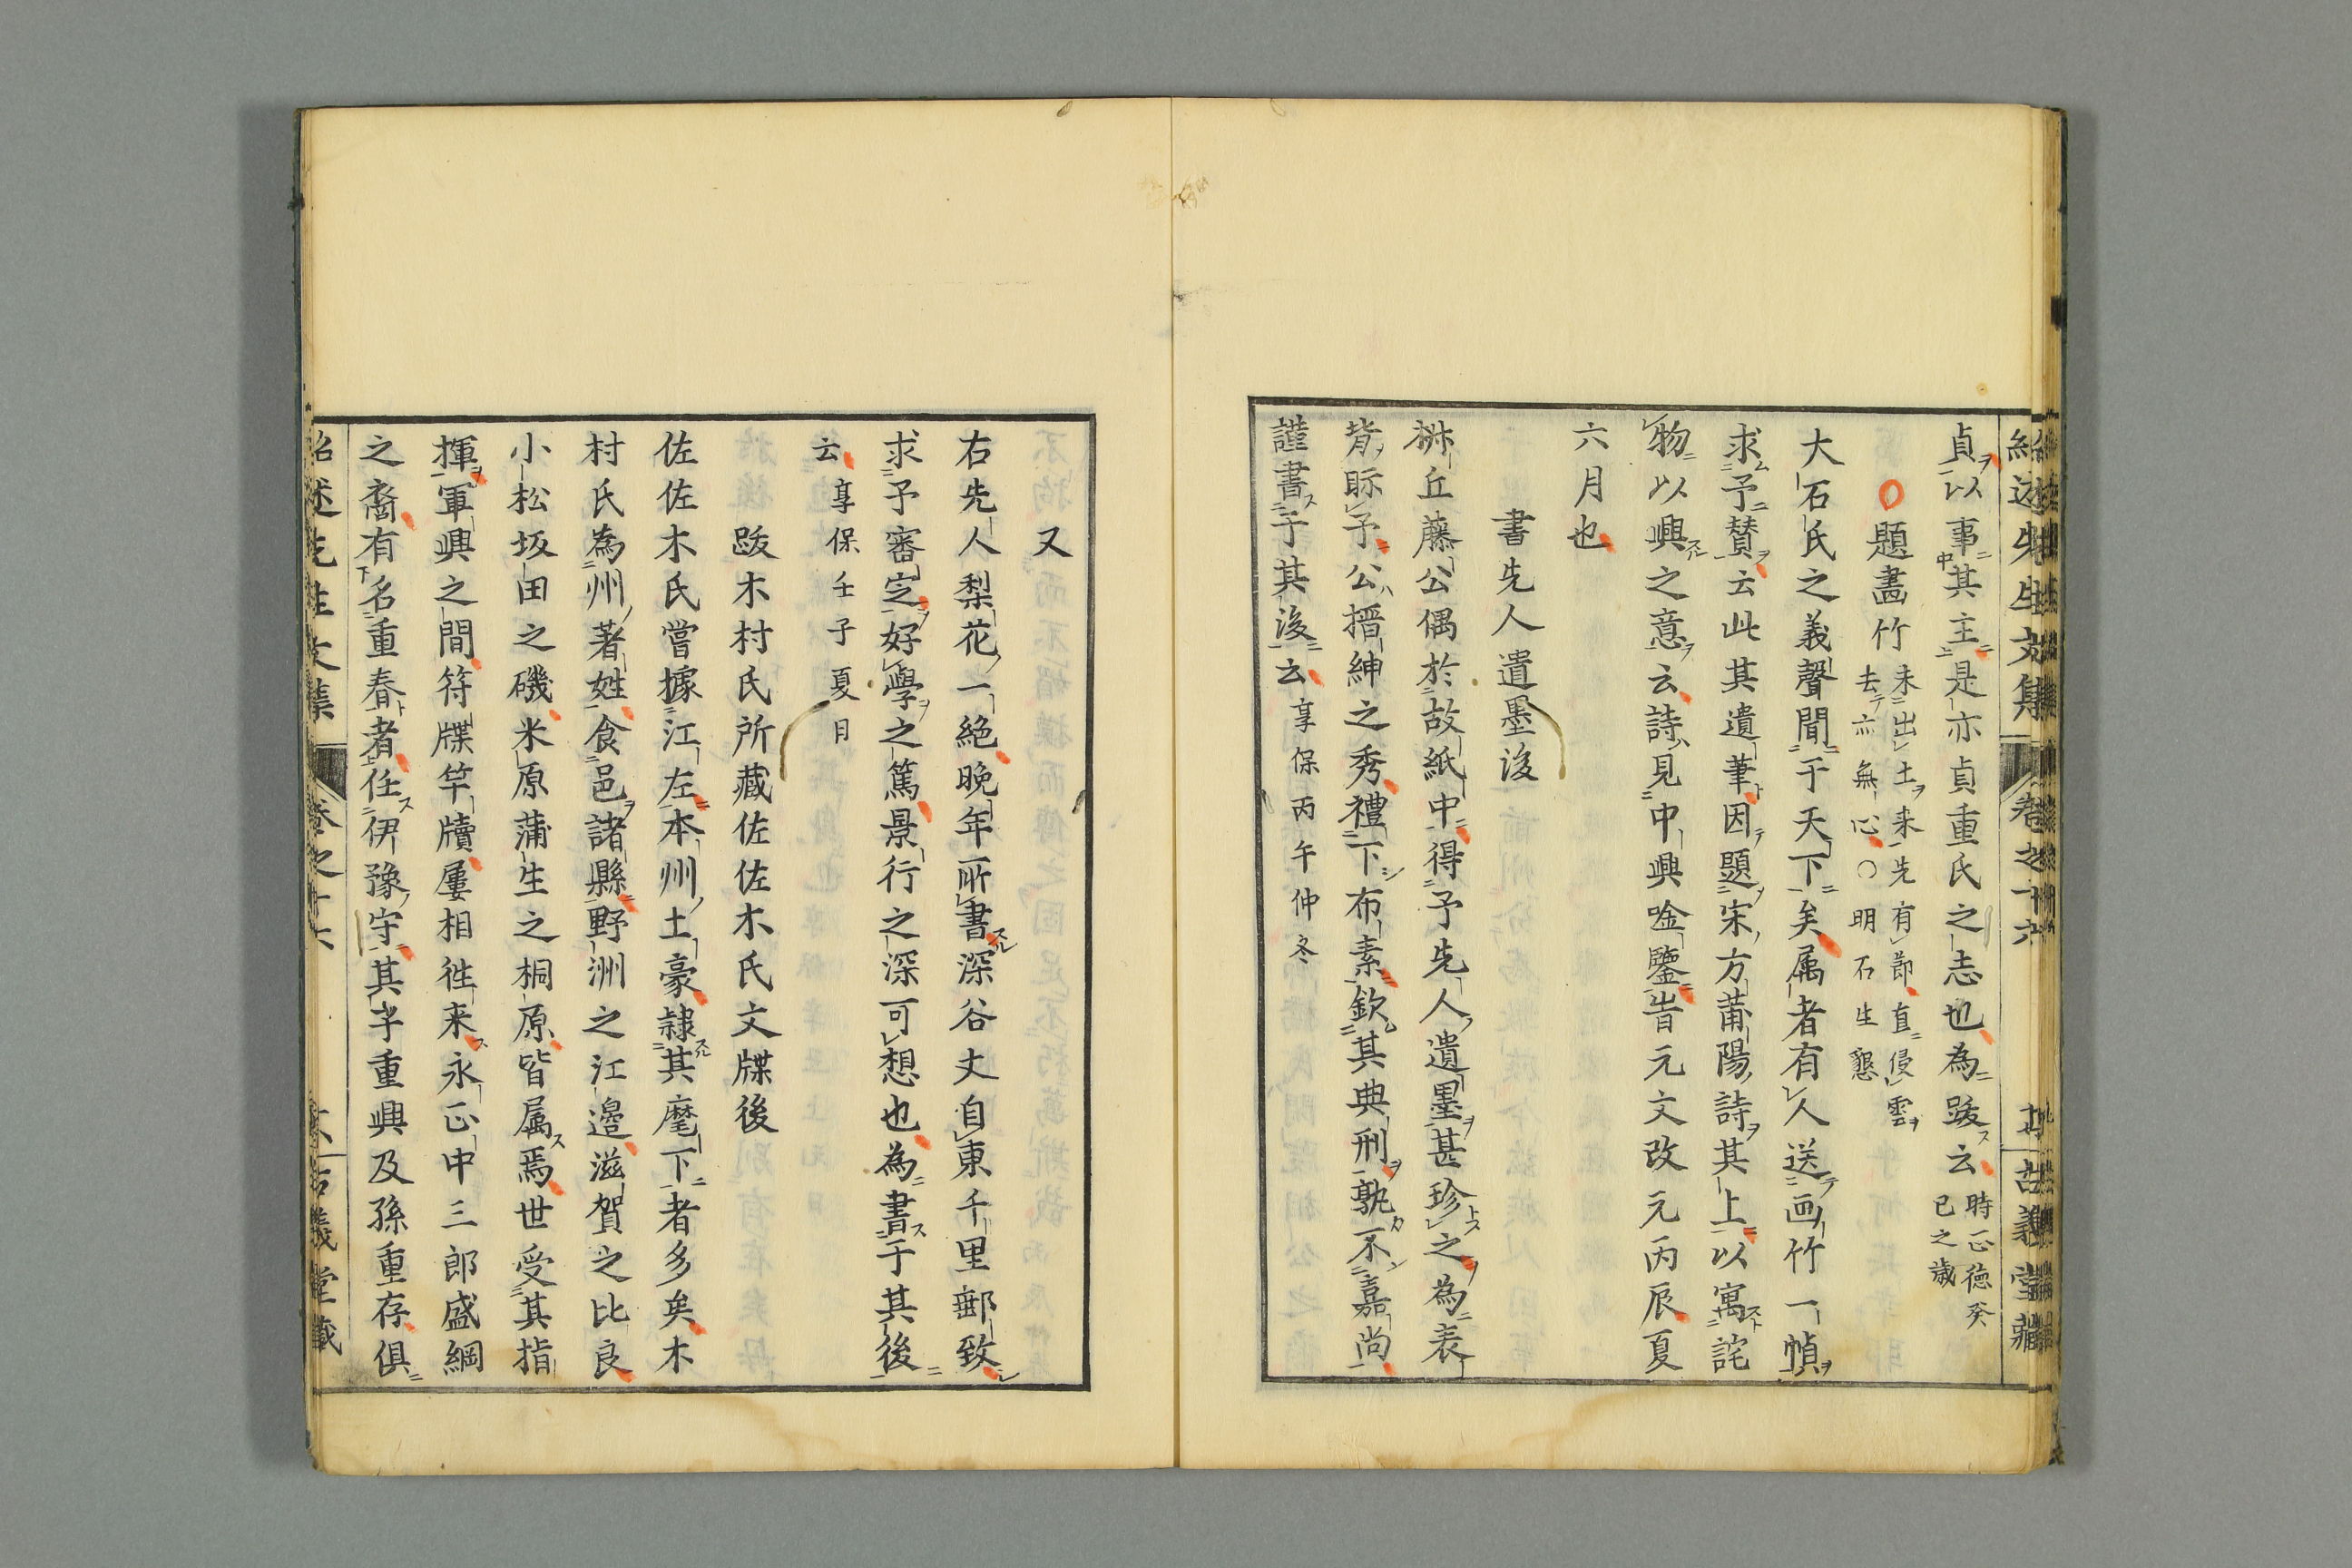 紹述先生文集 卷之十六 古義堂藏
貞以事其主是亦貞重氏之志也為跋云時正徳癸
巳之歳
題畵竹未出土来先有節直侵雲
去亦無心〇明石生懇
大石氏之義聲聞于天下矣属者有人送画竹一幀
求予賛云此其遺筆因題宋方莆陽詩其上以寓詫
物以興之意云詩見中興唫鑒旹元文改元丙辰夏
六月也
書先人遺墨後
桝丘藤公偶於故紙中得予先人遺墨甚珍之為表
背眎予公搢紳之秀禮下布素欽其典刑孰不嘉尚
謹書于其後云享保丙午仲冬
又
右先人梨花一絶晩年所書深谷丈自東千里郵致
求予審定好學之篤景行之深可想也為書于其後
云享保壬子夏月
跋木村氏所藏佐佐木氏文牒後
佐佐木氏嘗據江左本州土豪隷其麾下者多矣木
村氏為州著姓食邑諸縣野洲之江邉滋賀之比良
小松坂田之磯米原蒲生之桐原皆属焉世受其指
揮軍興之間符牒竿牘屢相徃来永正中三郎盛綱
之裔有名重春者任伊豫守其字重興及孫重存俱
紹述先生文集 卷之十六 古義堂藏